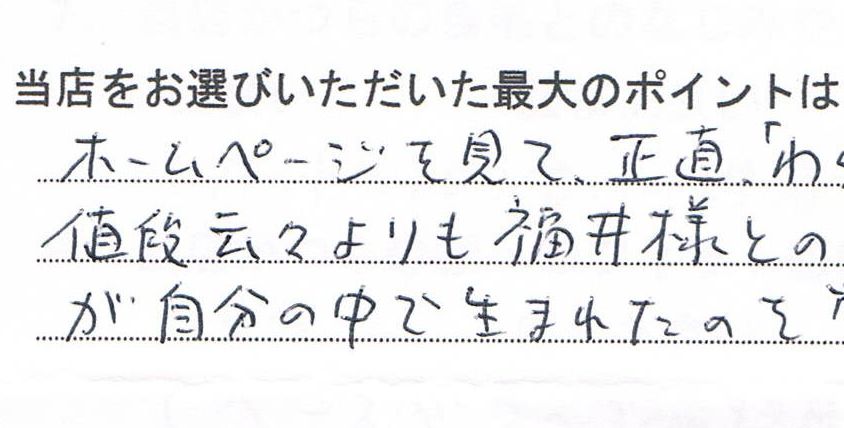 当店をお選びいただいた最大のポイントは
ホームページを見て、正直、「わ
値段云々よりも福井様との
が自分の中で生まれたのを